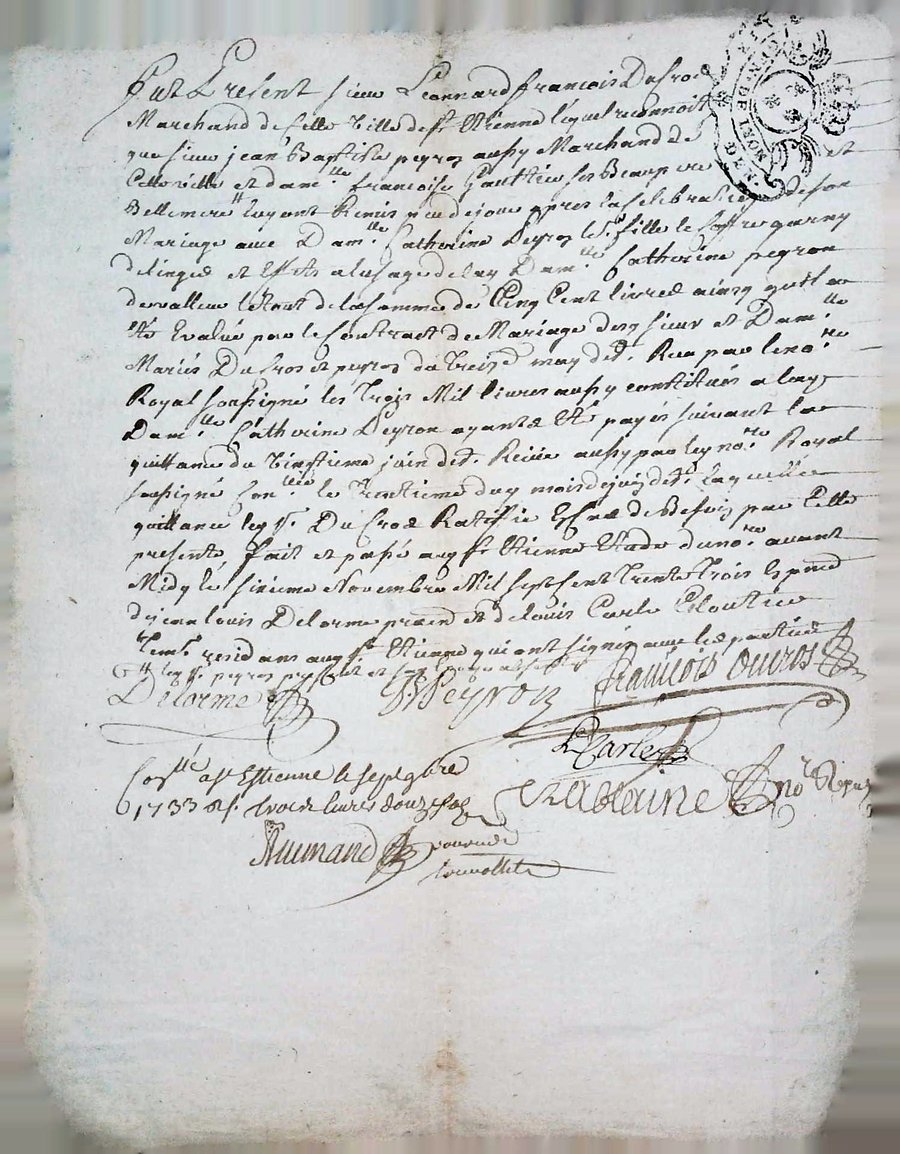 GEN. DE
Fut Present sieur Leonnard francois Ducros
Marchand de cette Ville de st Etienne lequel reconnoit
que sieur jean Baptiste peyron aussy Marchand de
Cette ville et dam.lle francoise Gauttier ses Beaupere et
Bellemere luy ont Remis peu de jour apres la celebration de son
Mariage avec Dam.lle Catherine Peyron fille le Coffre garny
de linges et Effets a lusage de lad Dam.lle Catherine peyron
de valleur le tout de la somme de Cinq Cent livres ainsy quil a
Eté Evalué par le Contract de Mariage desd sieur et Dam.lle
Mariés Ducros et peyron du Treize may det. Reçu par le no.re
Royal soussigné les Trois Mil livres aussy constitués a lad
Dam.lle Catherine Peyron ayant Eté payés suivant la
quittance du Vingtieme juin det. Reçüe aussy par led no.re Royal
soussigné le du mois de laquelle
quittance led sr. Du Cros Ratiffie de Besoin par Cette
presente, fait et passé aud st Etienne Etude dud no.re avant
Midy le sixieme Novembre Mil sept Cent Trente Trois En pnce
de jean louis Delorme pratn et de louis Carle Cloutier
Tem.s residans aud st Etienne qui ont signés avec les parties
led sr. peyron
Delorme
Peyron
françois ducros
L Carle
Con.llé a st Estienne le sept 9bre
1733 trois livres douze sols
no.re Royal